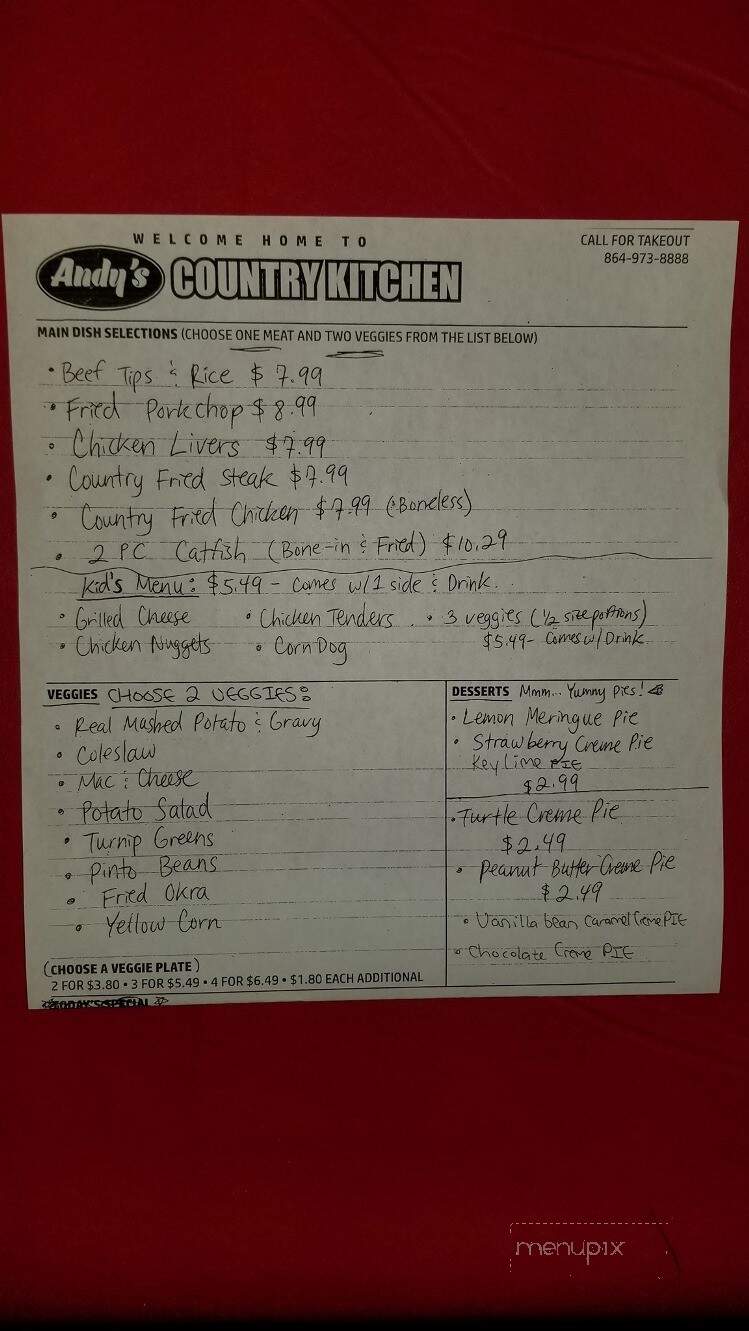 WELCOME HOME TO
Andy's COUNTRY KITCHEN
CALL FOR TAKEOUT
864-973-8888
MAIN DISH SELECTIONS (CHOOSE ONE MEAT AND TWO VEGGIES FROM THE LIST BELOW)
• Beef Tips & Rice $7.99
• Fried Porkchop $8.99
• Chicken Livers $7.99
• Country Fried Steak $7.99
• Country Fried Chicken $7.99 (Boneless)
• 2 PC Catfish (Bone-in & Fried) $10.29
Kid's Menu: $5.49 - Comes w/1 side & Drink.
• Grilled Cheese • Chicken Tenders • 3 veggies (1/2 size portions)
• Chicken Nuggets • Corn Dog $5.49- Comes w/Drink
VEGGIES CHOOSE 2 VEGGIES:
• Real Mashed Potato & Gravy
• Coleslaw
• Mac & Cheese
• Potato Salad
• Turnip Greens
• Pinto Beans
• Fried Okra
• Yellow Corn
(CHOOSE A VEGGIE PLATE)
2 FOR $3.80 • 3 FOR $5.49 • 4 FOR $6.49 • $1.80 EACH ADDITIONAL
TODAY'S SPECIAL
DESSERTS Mmm... Yummy Pies!
• Lemon Meringue Pie
• Strawberry Creme Pie
Key Lime PIE
$2.99
• Turtle Creme Pie
$2.49
• Peanut Butter Creme Pie
$2.49
• Vanilla bean Caramel Creme PIE
• Chocolate Creme PIE
menupix